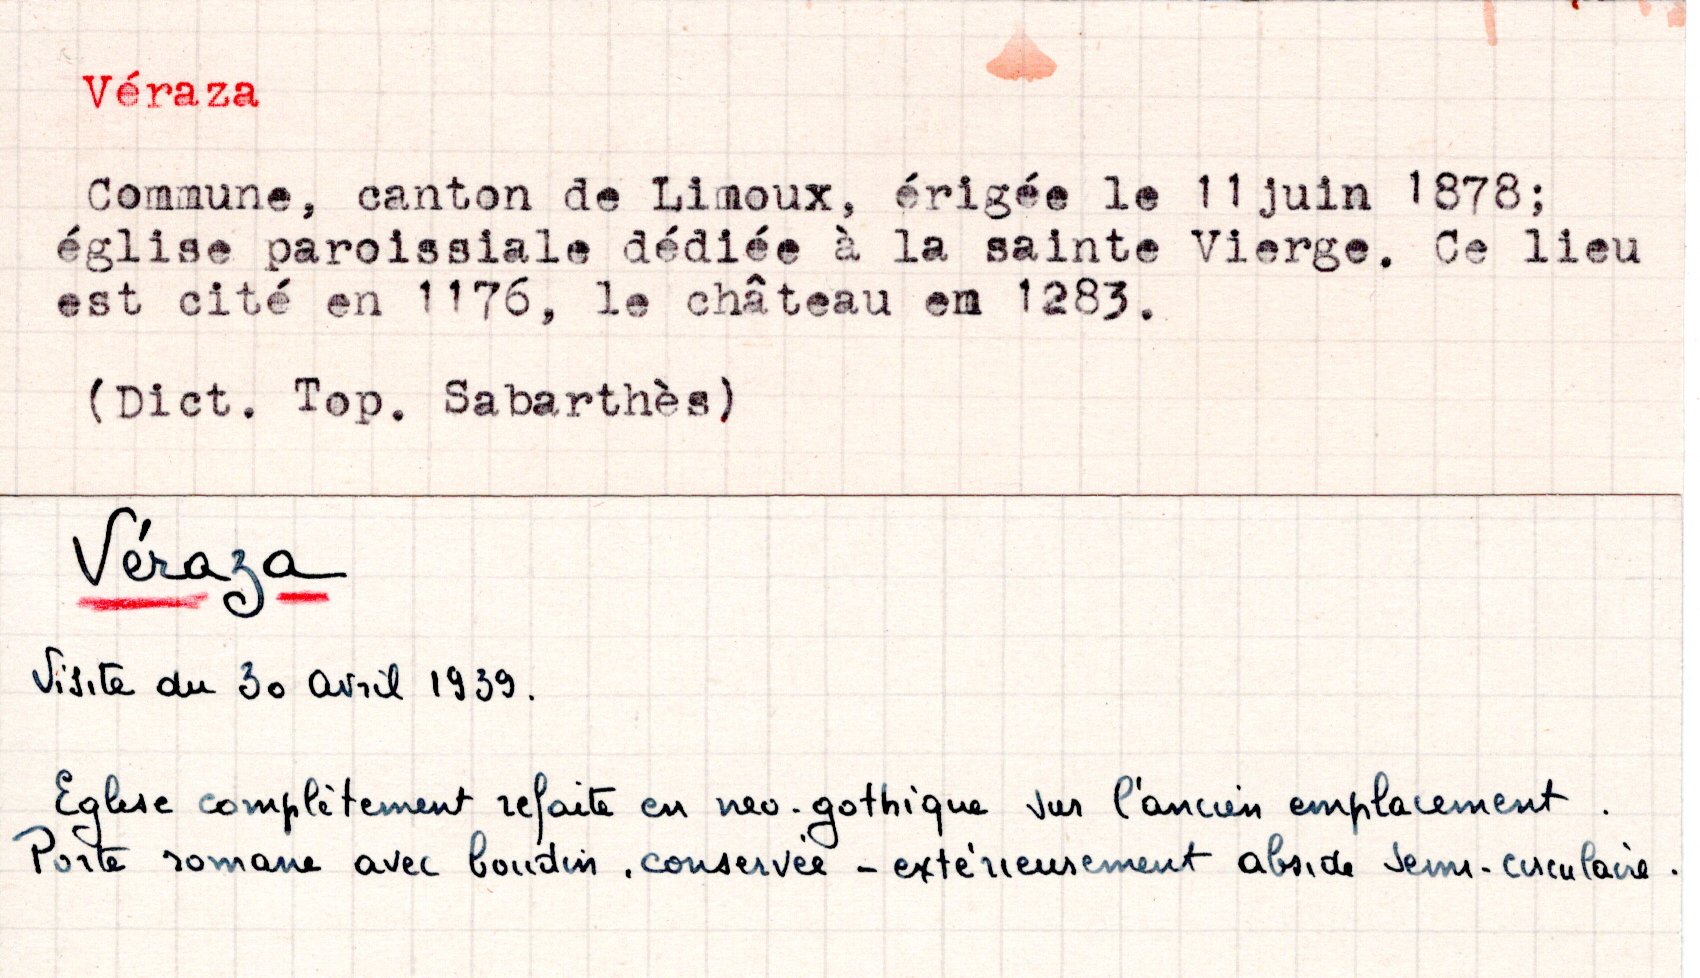 Véraza
Commune, canton de Limoux, érigée le 11 juin 1878;
église paroissiale dédiée à la sainte Vierge. Ce lieu
est cité en 1176, le château en 1283.
(Dict. Top. Sabarthès)
Véraza
Visite du 30 avril 1939.
Eglise complètement refaite en neo-gothique sur l'ancien emplacement.
Porte romane avec boudin, conservée - extérieurement abside semi-circulaire.